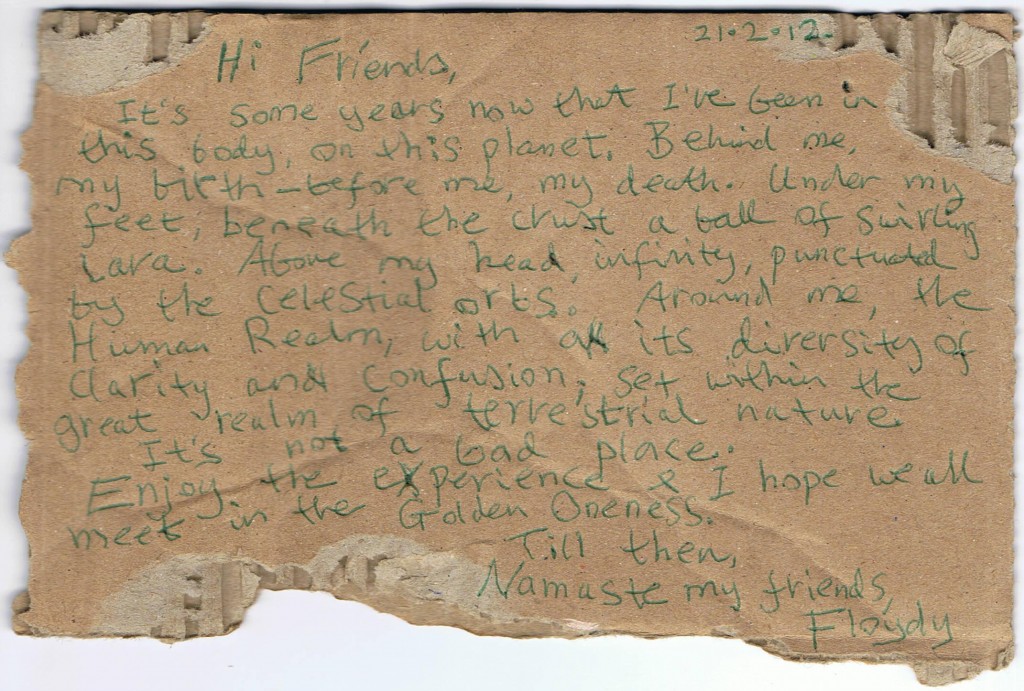 21.2.12.
Hi Friends,
It's some years now that I've been in
this body, on this planet. Behind me,
my birth - before me, my death. Under my
feet, beneath the crust a ball of swirling
Lava. Above my head, infinity, punctuated
by the celestial orbs. Around me, the
Human Realm, with all its diversity of
Clarity and Confusion, set within the
great realm of terrestrial nature.
It's not a bad place.
Enjoy the experience & I hope we all
meet in the Golden Oneness.
Till then,
Namaste my friends,
Floydy